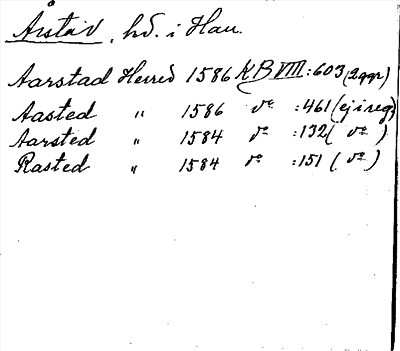 Årstad, hd. i Hall.
Aarstad Herred 1586 KB VIII :603 (2 ggr)
Aasted " 1586 do :461 (ej i reg)
Aarsted " 1584 do :132 ( do )
Rasted " 1584 do :151 ( do )